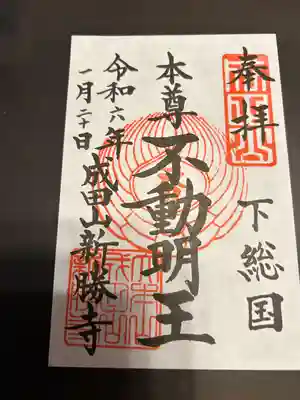 奉拝
下総国
本尊不動明王
令和六年
一月二十日
成田山新勝寺